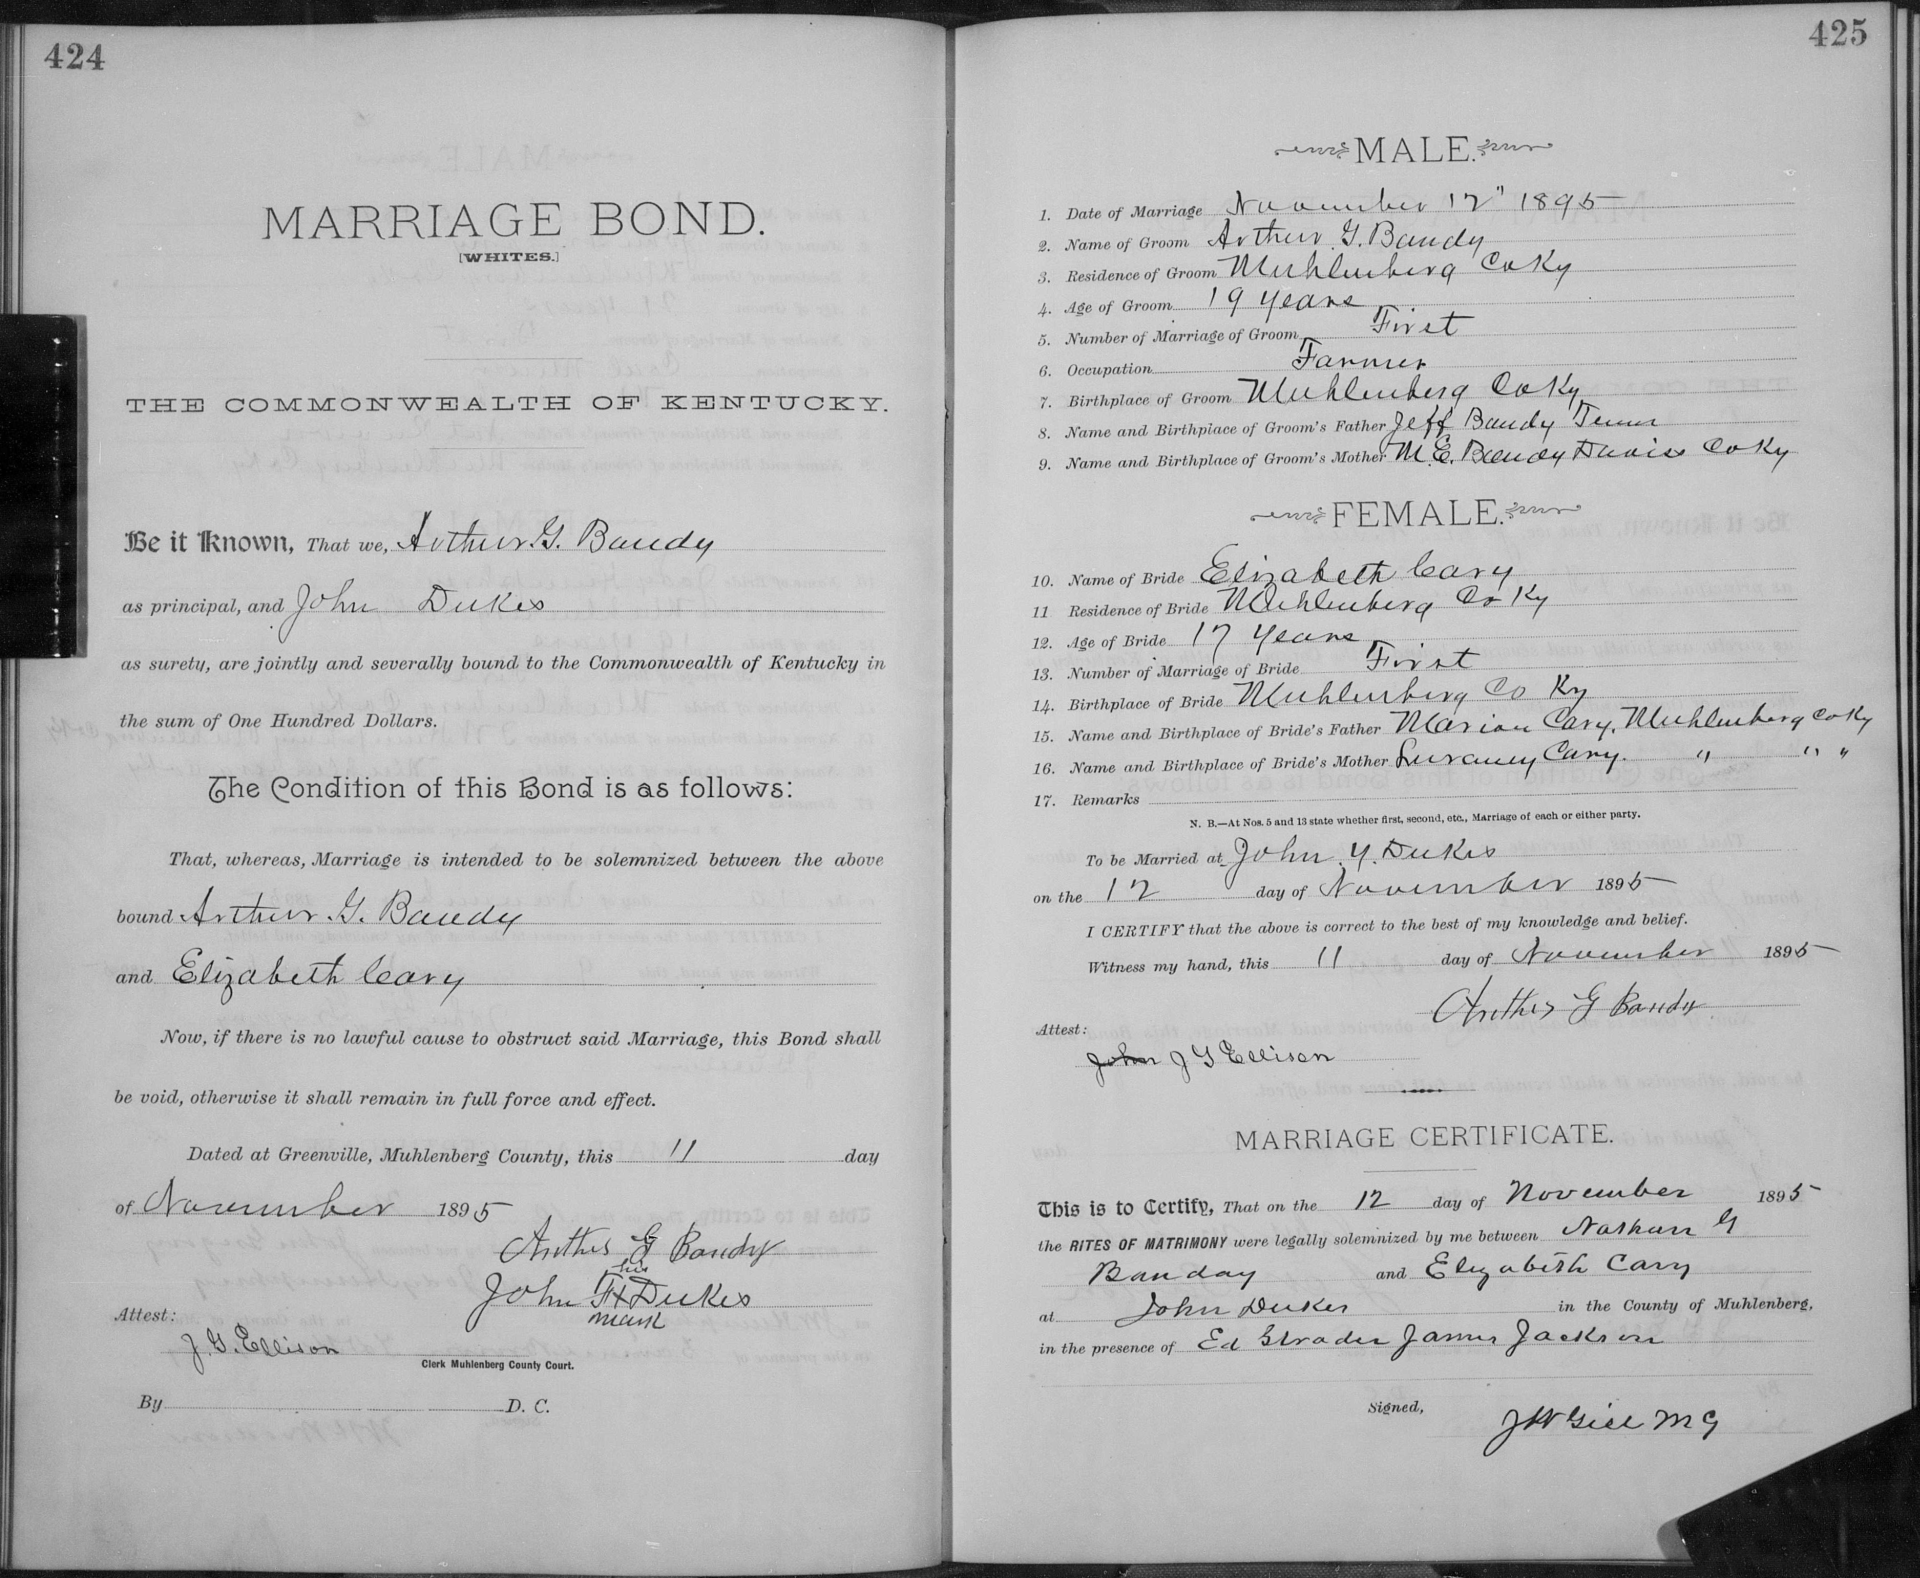 424
MARRIAGE BOND.
[WHITES.]
THE COMMONWEALTH OF KENTUCKY.
Be it Known, That we, Arthur G. Bandy
as principal, and John Dukes
as surety, are jointly and severally bound to the Commonwealth of Kentucky in
the sum of One Hundred Dollars.
The Condition of this Bond is as follows:
That, whereas, Marriage is intended to be solemnized between the above
bound Arthur G. Bandy
and Elizabeth Cary
Now, if there is no lawful cause to obstruct said Marriage, this Bond shall
be void, otherwise it shall remain in full force and effect.
Dated at Greenville, Muhlenberg County, this 11 day
of November 1895
Arther G Bandy
his
John X Dukes
mark
Attest:
J. G. Ellison
Clerk Muhlenberg County Court.
By D. C.
425
MALE.
1. Date of Marriage November 12" 1895
2. Name of Groom Arthur G. Bandy
3. Residence of Groom Muhlenberg Co Ky
4. Age of Groom 19 years
5. Number of Marriage of Groom First
6. Occupation Farmer
7. Birthplace of Groom Muhlenberg Co Ky
8. Name and Birthplace of Groom's Father Jeff Bandy Tenn
9. Name and Birthplace of Groom's Mother M. E. Bandy Daviess Co Ky
FEMALE.
10. Name of Bride Elizabeth Cary
11 Residence of Bride Muhlenberg Co Ky
12. Age of Bride 17 years
13. Number of Marriage of Bride First
14. Birthplace of Bride Muhlenberg Co Ky
15. Name and Birthplace of Bride's Father Marion Cary, Muhlenberg Co Ky
16. Name and Birthplace of Bride's Mother Luraney Cary. " " "
17. Remarks
N. B.—At Nos. 5 and 13 state whether first, second, etc., Marriage of each or either party.
To be Married at John Y. Dukes
on the 12 day of November 1895
I CERTIFY that the above is correct to the best of my knowledge and belief.
Witness my hand, this 11 day of November 1895
Arther G Bandy
Attest:
John J G Ellison
MARRIAGE CERTIFICATE.
This is to Certify, That on the 12 day of November 1895
the RITES OF MATRIMONY were legally solemnized by me between Nathan G
Banday and Elizabeth Cary
at John Dukes in the County of Muhlenberg,
in the presence of Ed Strader James Jackson
Signed,
J W Gill M G